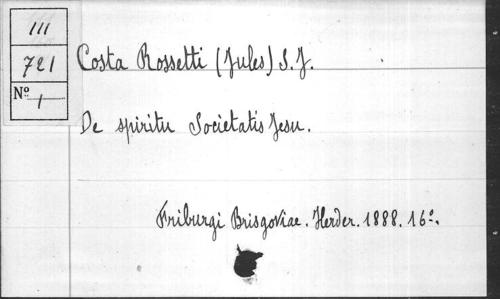 III
721
Nº 1
Costa Rossetti (Jules) S.J.
De spiritu Societatis Jesu.
Friburgi Brisgoviae. Herder. 1888. 16º.